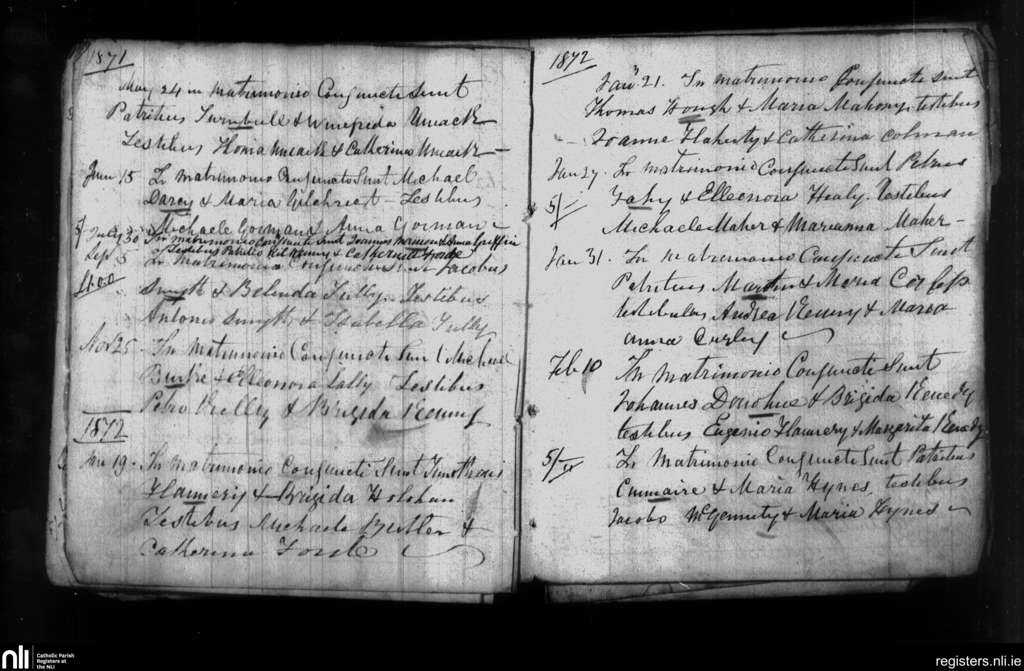 1871
May 24 in matrimonio Conjuncti Sunt
Patritius Turnbull & Winefrida Cusack
Testibus Honia Cusack & Catherina Cusack
June 15 In matrimonio Conjuncti Sunt Michael
Darcy & Maria Gilchrist - Testibus
Michaele Gorman & Anna Gorman
July 30 In matrimonio Conjuncti Sunt Joannes & Anna Griffin
Testibus Patritio Kilkenny & Catherina Forde
Sept 5 In matrimonio Conjuncti Sunt Jacobus
Smyth & Belinda Tully. Testibus
Antonio Smyth & Isabella Tully
Nov 25 - In Matrimonio Conjuncti Sunt Michael
Burke & Elleonora Lally Testibus
Petro Kelly & Brigida
1872
Jan 19 - In Matrimonio Conjuncti Sunt Timotheus
Flannery & Brigida Holohan
Testibus Michaele Butler &
Catherina Forde
1872
Jan 21. In matrimonio Conjuncti Sunt
Thomas Hough & Maria Mahony. testibus
- Joanne Flaherty & Catherina Colman
Jan 27 In matrimonio Conjuncti Sunt Petrus
5/ Fahy & Elleonora Healy. Testibus
Michaele Maher & Marianna Maher -
Jan 31. In matrimonio Conjuncti Sunt
Patritius Martin & Maria
testibus Andrea & Maria
Anna Curley
Feb 10 In Matrimonio Conjuncti Sunt
Johannes Donohue & Brigida Kenedy
testibus Eugenio Flannery & Margarita Kenedy
5/ In Matrimonio Conjuncti Sunt Patritius
& Maria Hynes, testibus
Jacobo & Maria Hynes
nli Catholic Parish
Registers at
the NLI
registers.nli.ie